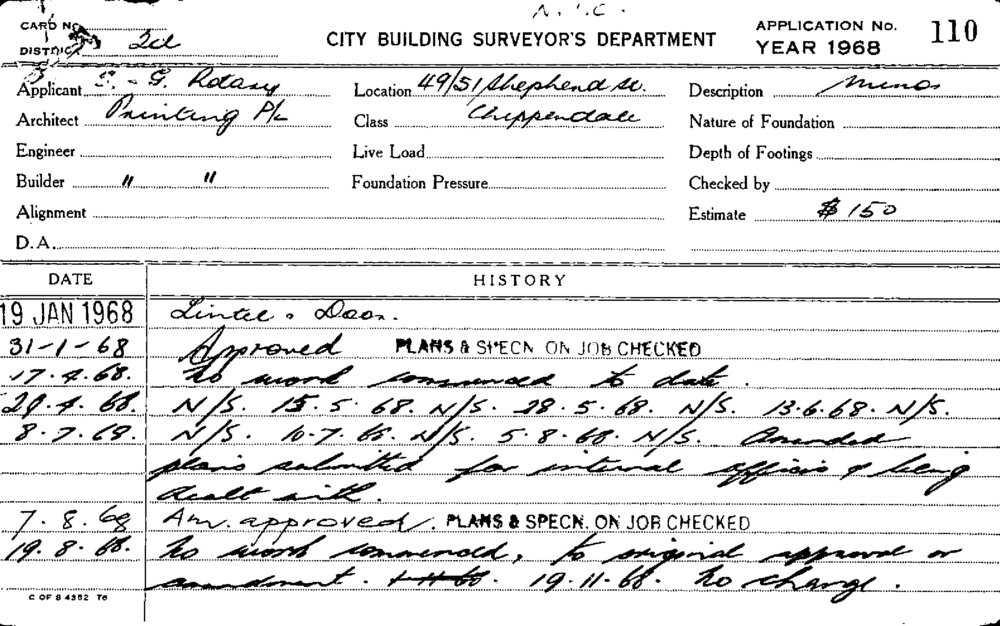 N.I.C.
CARD No.
DISTRICT 2d
CITY BUILDING SURVEYOR'S DEPARTMENT
APPLICATION No. 110
YEAR 1968
Applicant S. G. Rotary
Architect Printing P/L
Engineer
Builder " "
Alignment
D.A.
Location 49/51 Shepherd St.
Class Chippendale
Live Load
Foundation Pressure
Description Minor
Nature of Foundation
Depth of Footings
Checked by
Estimate $150
DATE HISTORY
19 JAN 1968 Lintel & Door.
31-1-68 Approved PLANS & SPECN. ON JOB CHECKED
17.4.68. No work commenced to date.
29.4.68. N/S. 15.5.68. N/S. 28.5.68. N/S. 13.6.68. N/S.
8.7.68. N/S. 10.7.68. N/S. 5.8.68. N/S. Amended
plans submitted for internal offices & being
dealt with.
7.8.68 Am. approved. PLANS & SPECN. ON JOB CHECKED
19.8.68. No work commenced, to original approval or
amendment. 19.11.68. No change.
C OF S 4352 T6